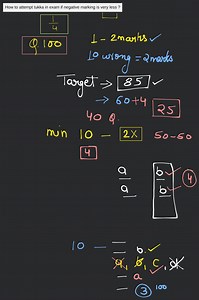 How to attempt tukka in exam if negative marking is very less ?
1/4
Q 100
1 - 2 marks ✓
10 wrong = 2 marks
Target → 85 ✓
→ 60 + 4
25
40 Q.
min 10 - 2x 50-60
4
a b ✓
a b ✓ 4
10 - = b. ✓
a, b, c, d
- a ✓
- 3 100